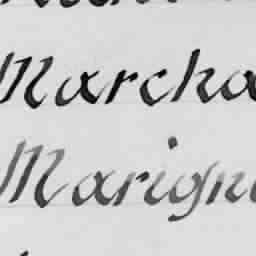 Marcha
Marign